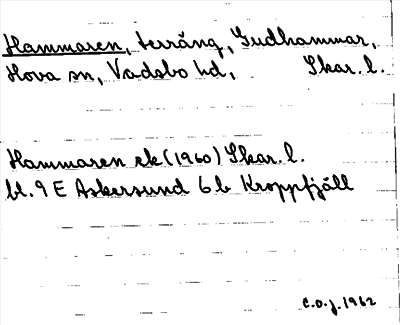 Hammaren, terräng, Gudhammar,
Hova sn, Vadsbo hd, Skar. l.
Hammaren ek (1960) Skar. l.
bl. 9 E Askersund 6 b Kroppfjäll
C.O.J. 1962